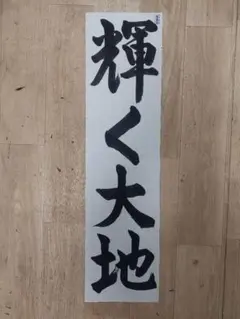 輝く大地